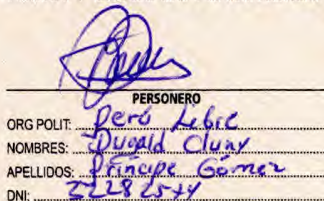 PERSONERO
ORG POLIT: Perú Libre
NOMBRES: Dugald Cluny
APELLIDOS: Príncipe Gómez
DNI: